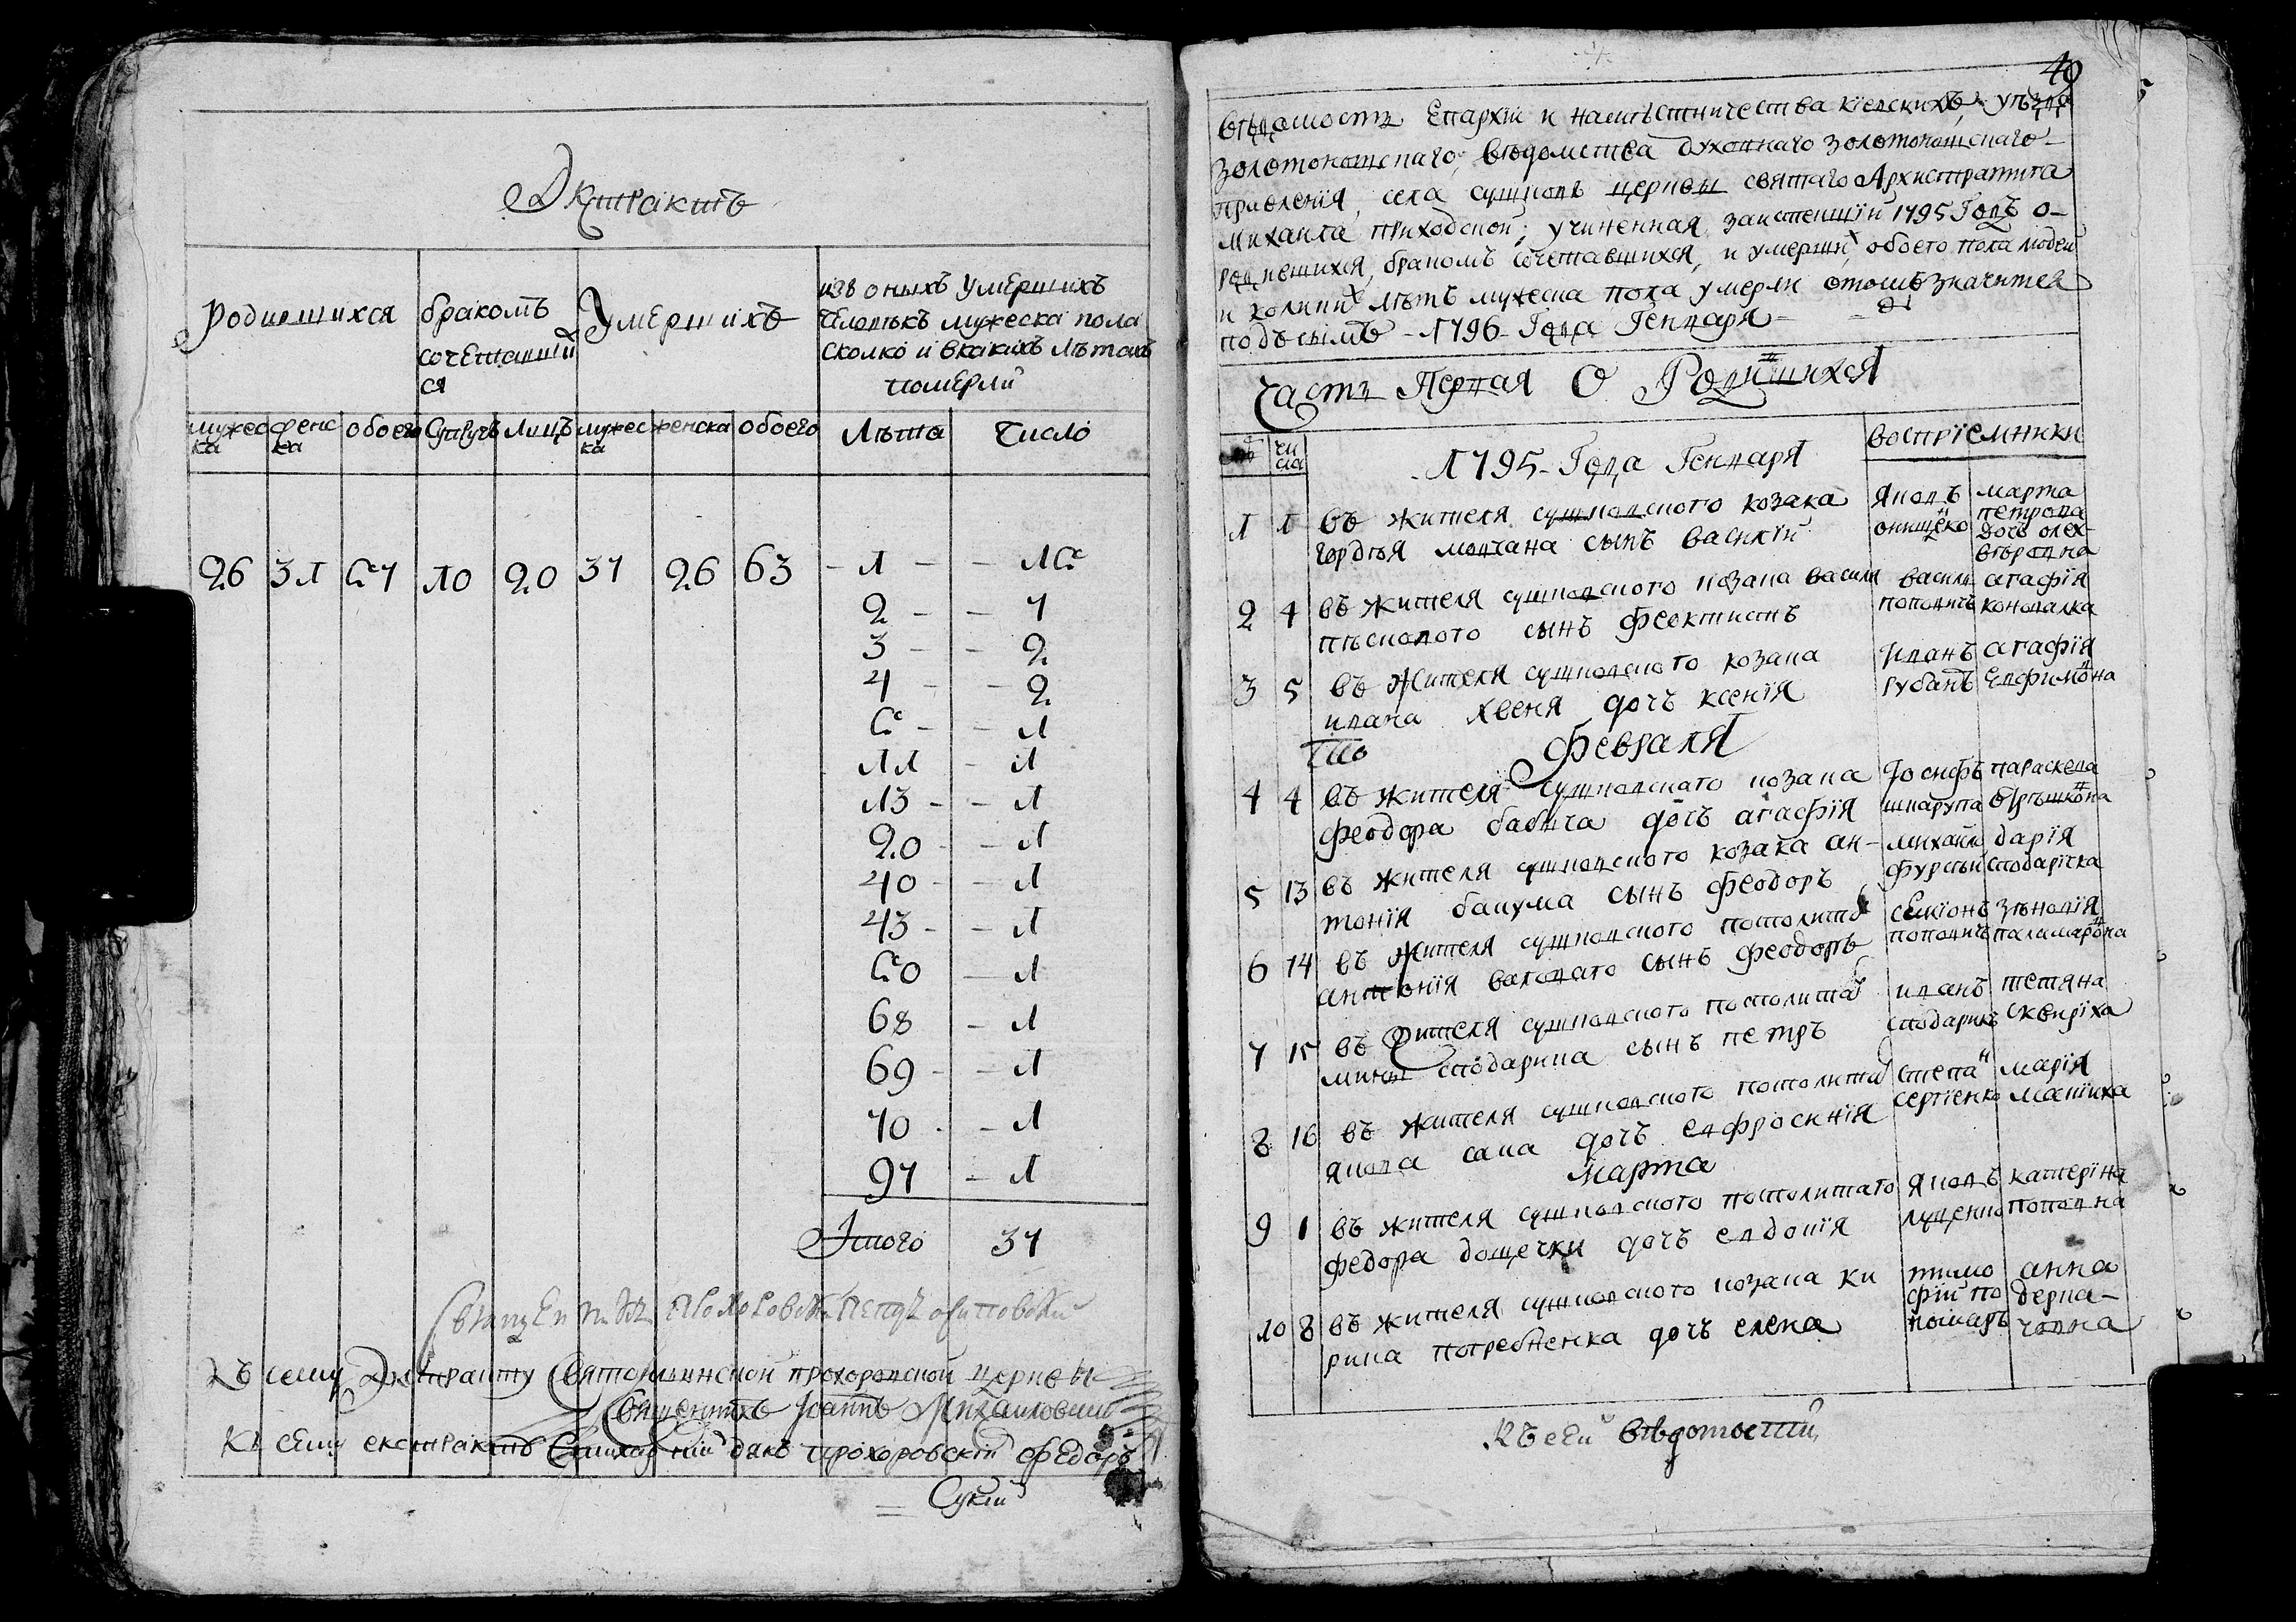 Экстрактъ
Родившихся
бракомъ
сочетавший
ся
Умершихъ
изъ оныхъ умершихъ
человѣкъ мужеска пола
сколко и вкакихъ лѣтахъ
померли
мужес
ка
женс
ка
обоего
Супругъ
Лицъ
мужес
ка
женска
обоего
Лѣта
Число
26 31 57 10 20 37 26 63
1 - - 15
2 - - 7
3 - - 2
4 - - 2
5 - - 1
11 - 1
13 - - 1
20 - - 1
40 - - 1
43 - - 1
50 - 1
68 - 1
69 - - 1
70 - - 1
97 - 1
Итого 37
Къ сему Экстракту Святоильинской прохоровской церкви
Священникъ Іоаннъ Михаиловский
Къ сему екстракту дякъ прохоровский Федоръ
Сукій
49
Вѣдомость Епархіи и намѣстничества кіевскихъ, уѣзда
золотоношскаго, вѣдомства духовнаго золотоношскаго
правленія, села сушковъ церкви святаго Архистратига
Михаила приходской, учиненная заистекшій 1795 Годъ о-
родившихся, бракомъ сочетавшихся, и умершихъ, обоего пола людей
и коликихъ лѣтъ мужеска пола умерли отомъ значится
подъсимъ - 1796 Года Генваря -
Часть Первая О Родившихся
чи
сла
1795 - Года Генваря
воспріемники
1 1 въ жителя сушковского козака
гордѣя мовчана сынъ василій
Яковъ
онищенко
марта
петрова
дочь олех-
вѣровна
2 4 въ жителя сушковского козака василя
пѣсковото сынъ феоктистъ
василь
поповичъ
агафія
коновалка
3 5 въ жителя сушковского козака
ивана хвеня дочъ ксенія
Иванъ
губанъ
агафія
Евфимовна
Февраля
4 4 въ жителя сушковскаго козака
феодора бабича дочъ агафія
Іосифъ
шкарупа
параскева
5 13 въ жителя сушковского козака ан-
тонія бакума сынъ феодоръ
михаил
фурсъи
дарія
сподарѣска
6 14 въ жителя сушковского посполитаго
антонія валоваго сынъ феодоръ
семіонъ
поповичъ
зѣновія
паламаровна
7 15 въ жителя сушковского посполитаго
мины сподарика сынъ петръ
иванъ
сподарикъ
тетяна
сквиріха
8 16 въ жителя сушковского посполитаго
якова сака дочъ евфросинія
степан
сергіенко
марія
Марта
9 1 въ жителя сушковского посполитаго
федора дощечки дочъ евдокія
Яковъ
луценко
катеріна
поповна
10 8 въ жителя сушковского козака ки
рика погребненка дочъ елена
тимо
фій по
анна
дерка-
човна
Къ сей вѣдомости